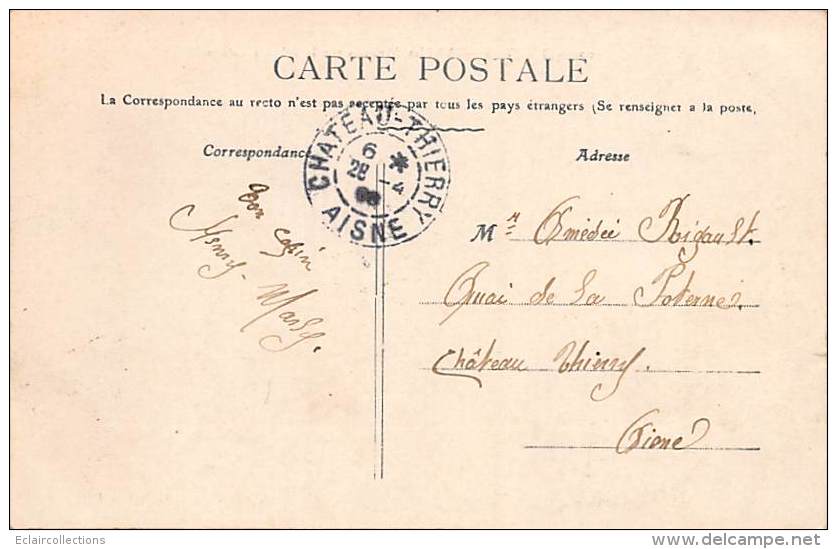 CARTE POSTALE
La Correspondance au recto n'est pas acceptée par tous les pays étrangers (Se renseigner a la poste,
Correspondance
Adresse
CHATEAU-THIERRY
6 *
28 -4
AISNE
Ton cousin
Henry Massy.
Mr Amédée Rigault.
Quai de La Poterne.
Château Thierry.
Aisne
Eclaircollections
www.delcampe.net